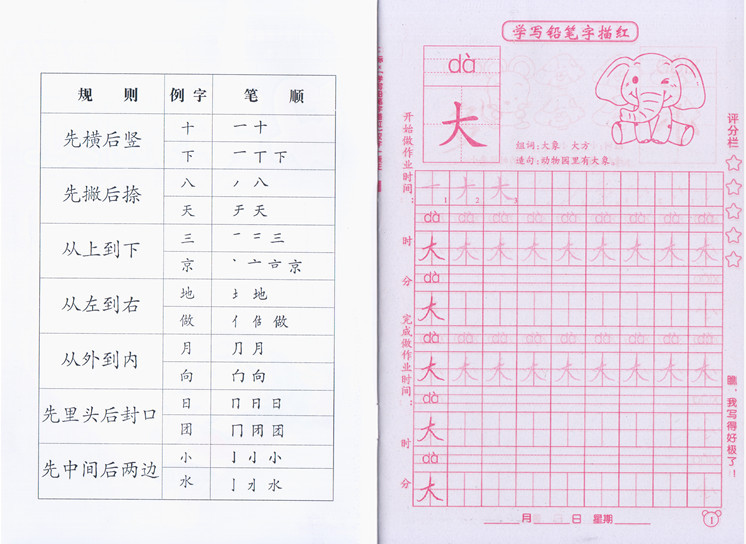 规 则 例字 笔 顺
先横后竖 十 一 十
下 一 丅 下
先撇后捺 八 丿 八
天 天
从上到下 三 一 二 三
京 丶 亠 京
从左到右 地 土 地
做 亻 做
从外到内 月 月
向 向
先里头后封口 日 冂 日 日
团 冂 闭 团
先中间后两边 小 亅 小
水 亅 水
学写铅笔字描红
dà
大
组词：大象 大方
造句：动物园里有大象。
开始做作业时间：
时
分
完成做作业时间：
时
分
一1 大2 大3
dà dà dà dà dà dà dà dà dà
大 大 大 大 大 大 大 大 大
dà
大
dà dà dà dà dà dà dà dà dà
大 大 大 大 大 大 大 大 大
dà
大
dà
大
评分栏
瞧，我写得好极了！
月 日 星期
1